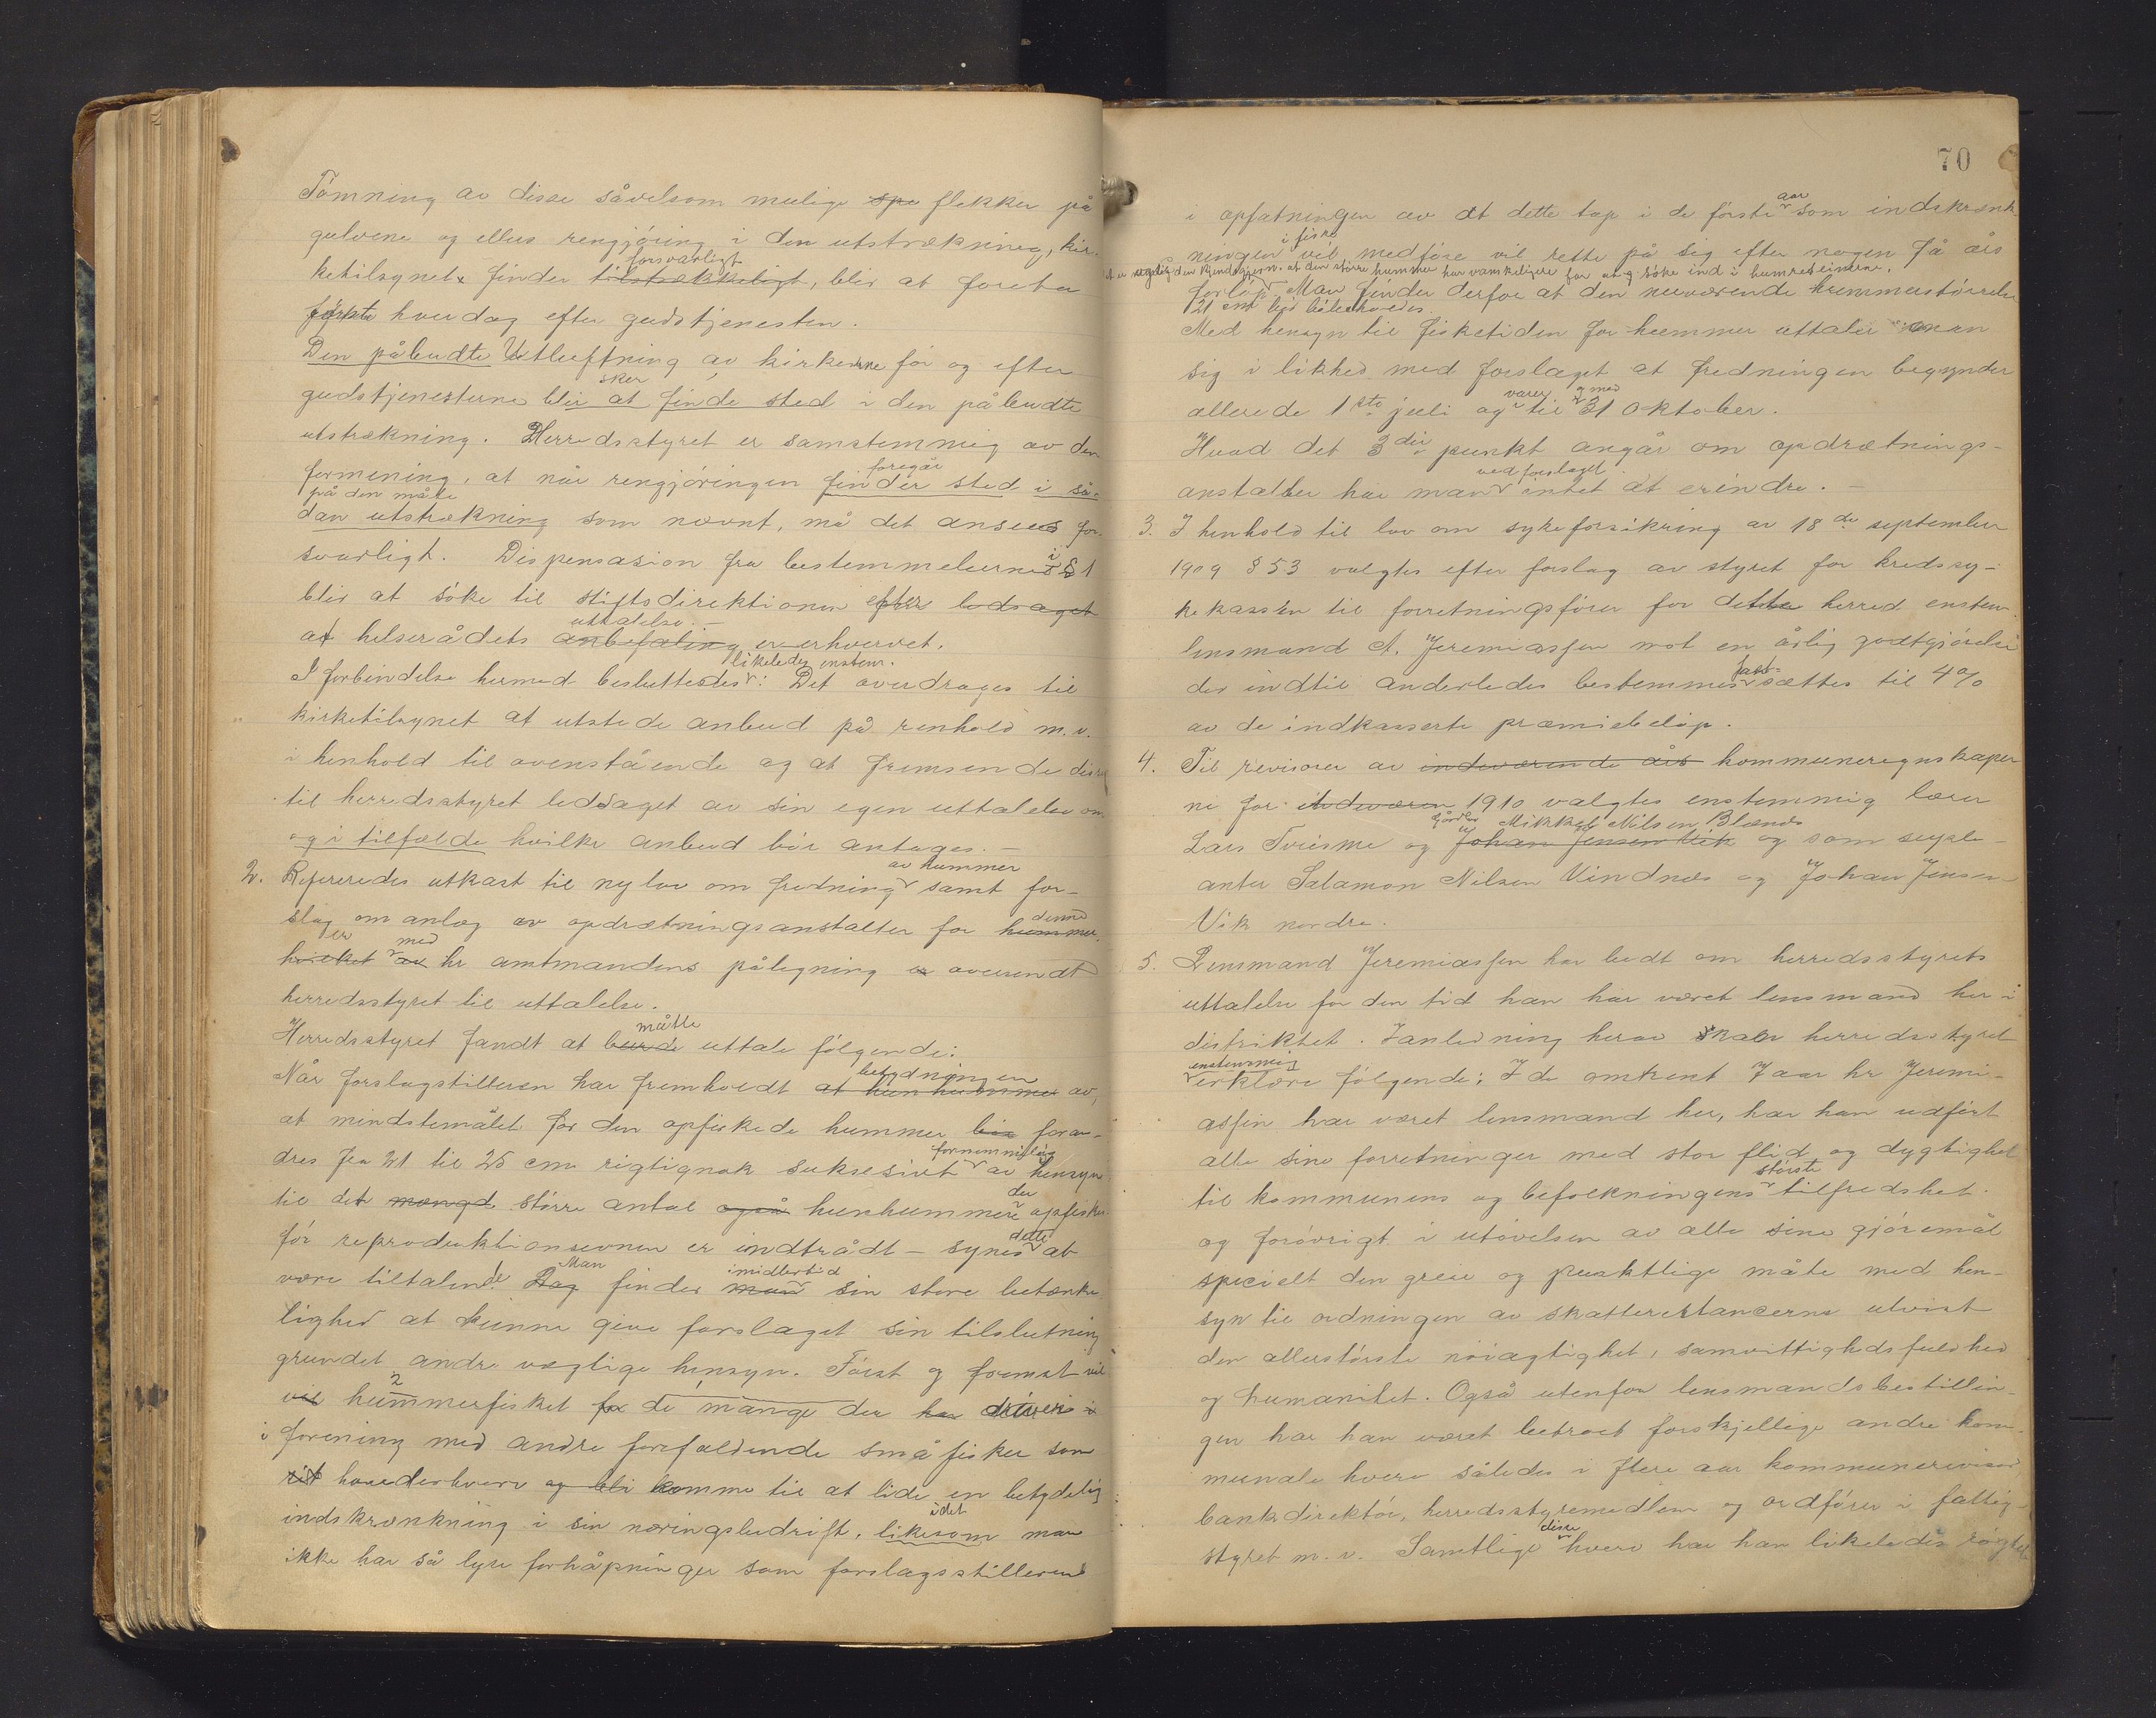 Tömning av disse såvelsom mulige spe flekker på
gulvene og ellers rengjöring i den utstrækning, kir-
forsvarligt
ketilsynet finder tilstrækkeligt, blir at foreta
förste hverdag efter gudstjenesten.
Den påbudte Utluftning av kirkerne för og efter
sker
gudstjenesterne blir at finde sted i den påbudte
utstrækning. Herredsstyret er samstemmig av den
foregår
formening, at når rengjöringen finder sted i så-
på den måte
dan utstrækning som nævnt, må det ansees for-
svarligt. Dispensasion fra bestemmelserne i § 1
blir at söke til stiftsdirektionen efter ledsaget
uttalelse.-
af helserådets anbefaling er erhvervet.
likeledes enstem.
I forbindelse hermed besluttedes: Det overdrages til
kirketilsynet at utstede anbud på renhold m.v.
i henhold til ovenstående og at fremsende disse
til herredsstyret ledsaget av sin egen uttalelse om
og i tilfælde hvilke anbud bör antages.-
av hummer
2. Refereredes utkast til ny lov om fredning samt for-
slag om anlæg av opdrætningsanstalter for hummer denne
er med
hvilket av hr amtmandens påtegning er oversendt
herredsstyret til uttalelse.
måtte
Herredsstyret fandt at burde uttale fölgende:
betydningen
Når forslagstilleren har fremholdt at hunhummer av,
at mindstemålet for den opfiskede hummer bör foran-
fornemmelig
dres fra 21 til 25 cm rigtignok suksesivt av hensyn
der
til det mængde större antal også hunhummere opfiskes
dette
för reproduktionsevnen er indtrådt – synes at
Man imidlertid
være tiltalende. Dog finder man sin store betænke
lighed at kunne give forslaget sin tilslutning
grundet andre vægtige hensyn. Först og fremst vil
2
vil hummerfisket for de mange der har driver i
i forening med andre forefaldende småfisker som
sit hovederhverv og bli komme til at lide en betydelig
idet
indskrænkning i sin næringsbedrift, likesom man
ikke har så lyse forhåpninger som forslagsstilleren
70
aar
i opfatningen av at dette tap i de förste som indskrænk
i fisket
ningen vil medföre vil rette på sig efter nogen få års
den större hummer har vanskeligere for at söke ind i
forlöp. Man finder derfor at den nuværende hummerstörrelse
21 cm bör bibeholdes.
Med hensyn til fisketiden for hummer uttaler man
sig i likhed med forslaget at fredningen begynder
varer og med
allerede 1ste juli og til 31 oktober.
Hvad det 3die punkt angår om opdrætnings-
ved forslaget
anstalter har man intet at erindre.-
3. I henhold til lov om sykeforsikring av 18de september
1909 § 53 valgtes efter forslag av styret for kredssy-
kekassen til forretningsförer for dette herred enstem.
lensmand A. Jeremiassen mot en årlig godtgjörelse
fast-
der indtil anderledes bestemmes sættes til 4%
av de indkasserte præmiebelöp.
4. Til revisorer av indeværende års kommuneregnskaper
ne for indeværen 1910 valgtes enstemmig lærer
gårdbr Mikkel Nilsen Blænes
Lars og Johan Jensen Vik og som suple-
anter Salamon Nilsen Vindnæs og Johan Jensen
Vik nordre.
5. Lensmand Jeremiassen har bedt om herredsstyrets
uttalelse for den tid han har været lensmand her i
distriktet. I anledning herav skal herredsstyret
enstemmig
erklære fölgende: I de omtrent 7 aar hr Jeremi-
assen har været lensmand her, har han udfört
alle sine forretninger med stor flid og dygtighet
störste
til kommunens og befolkningens tilfredshet.
og forövrigt i utövelsen av alle sine gjöremål
specielt den greie og punktlige måte med hen-
syn til ordningen av skatterestancerne utvist
den allerstörste nöiagtighet, samvittighedsfuldhed
og humanitet. Også utenfor lensmandsbestillin-
gen har han været betroet forskjellige andre kom-
munale hverv således i flere aar kommunerevisor
bankdirektör, herredsstyremedlem og ordförer i fattig-
disse
styret m.v. Samtlige hverv har han likeledes rögtet